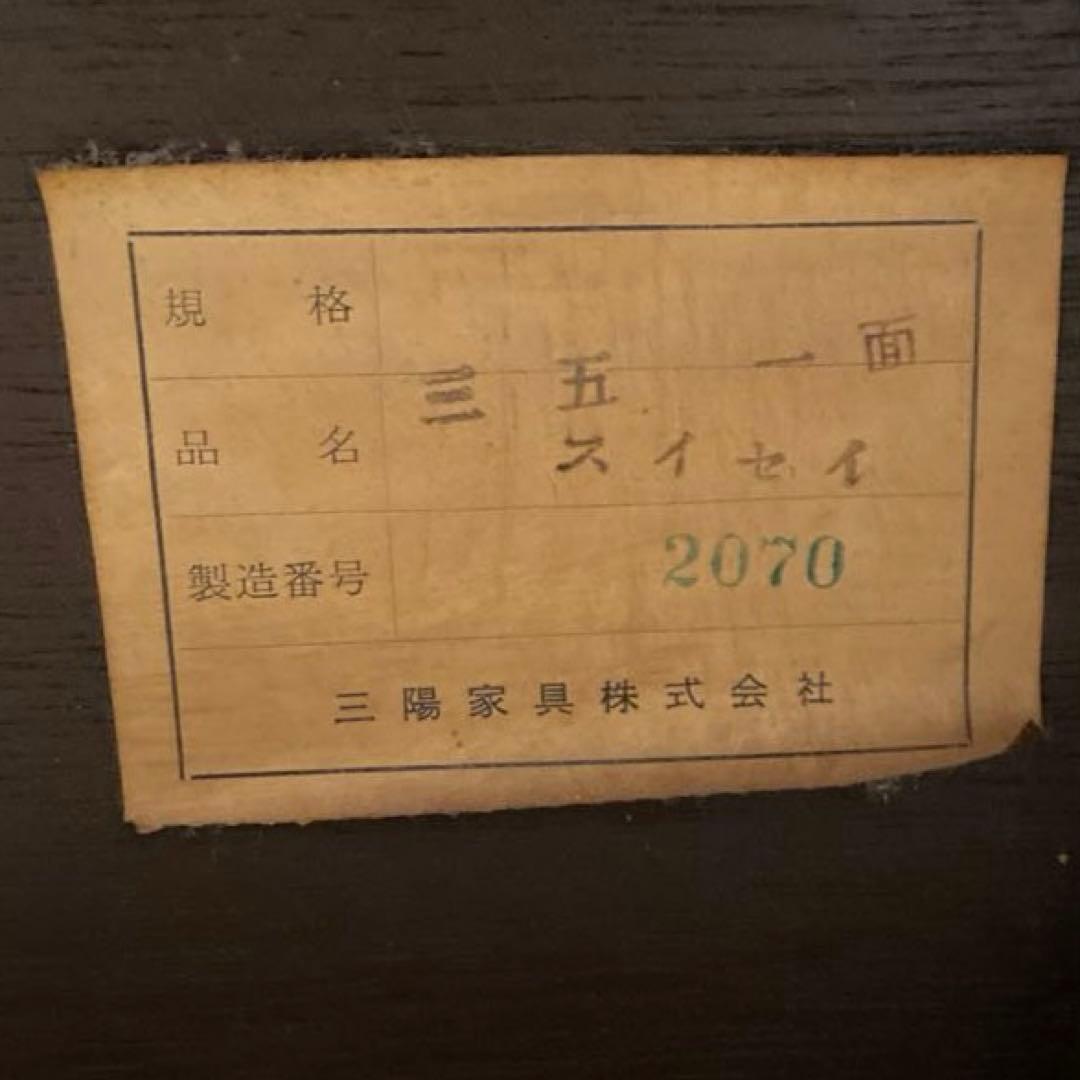 規格 三五 一面
品名 スイセイ
製造番号 2070
三陽家具株式会社